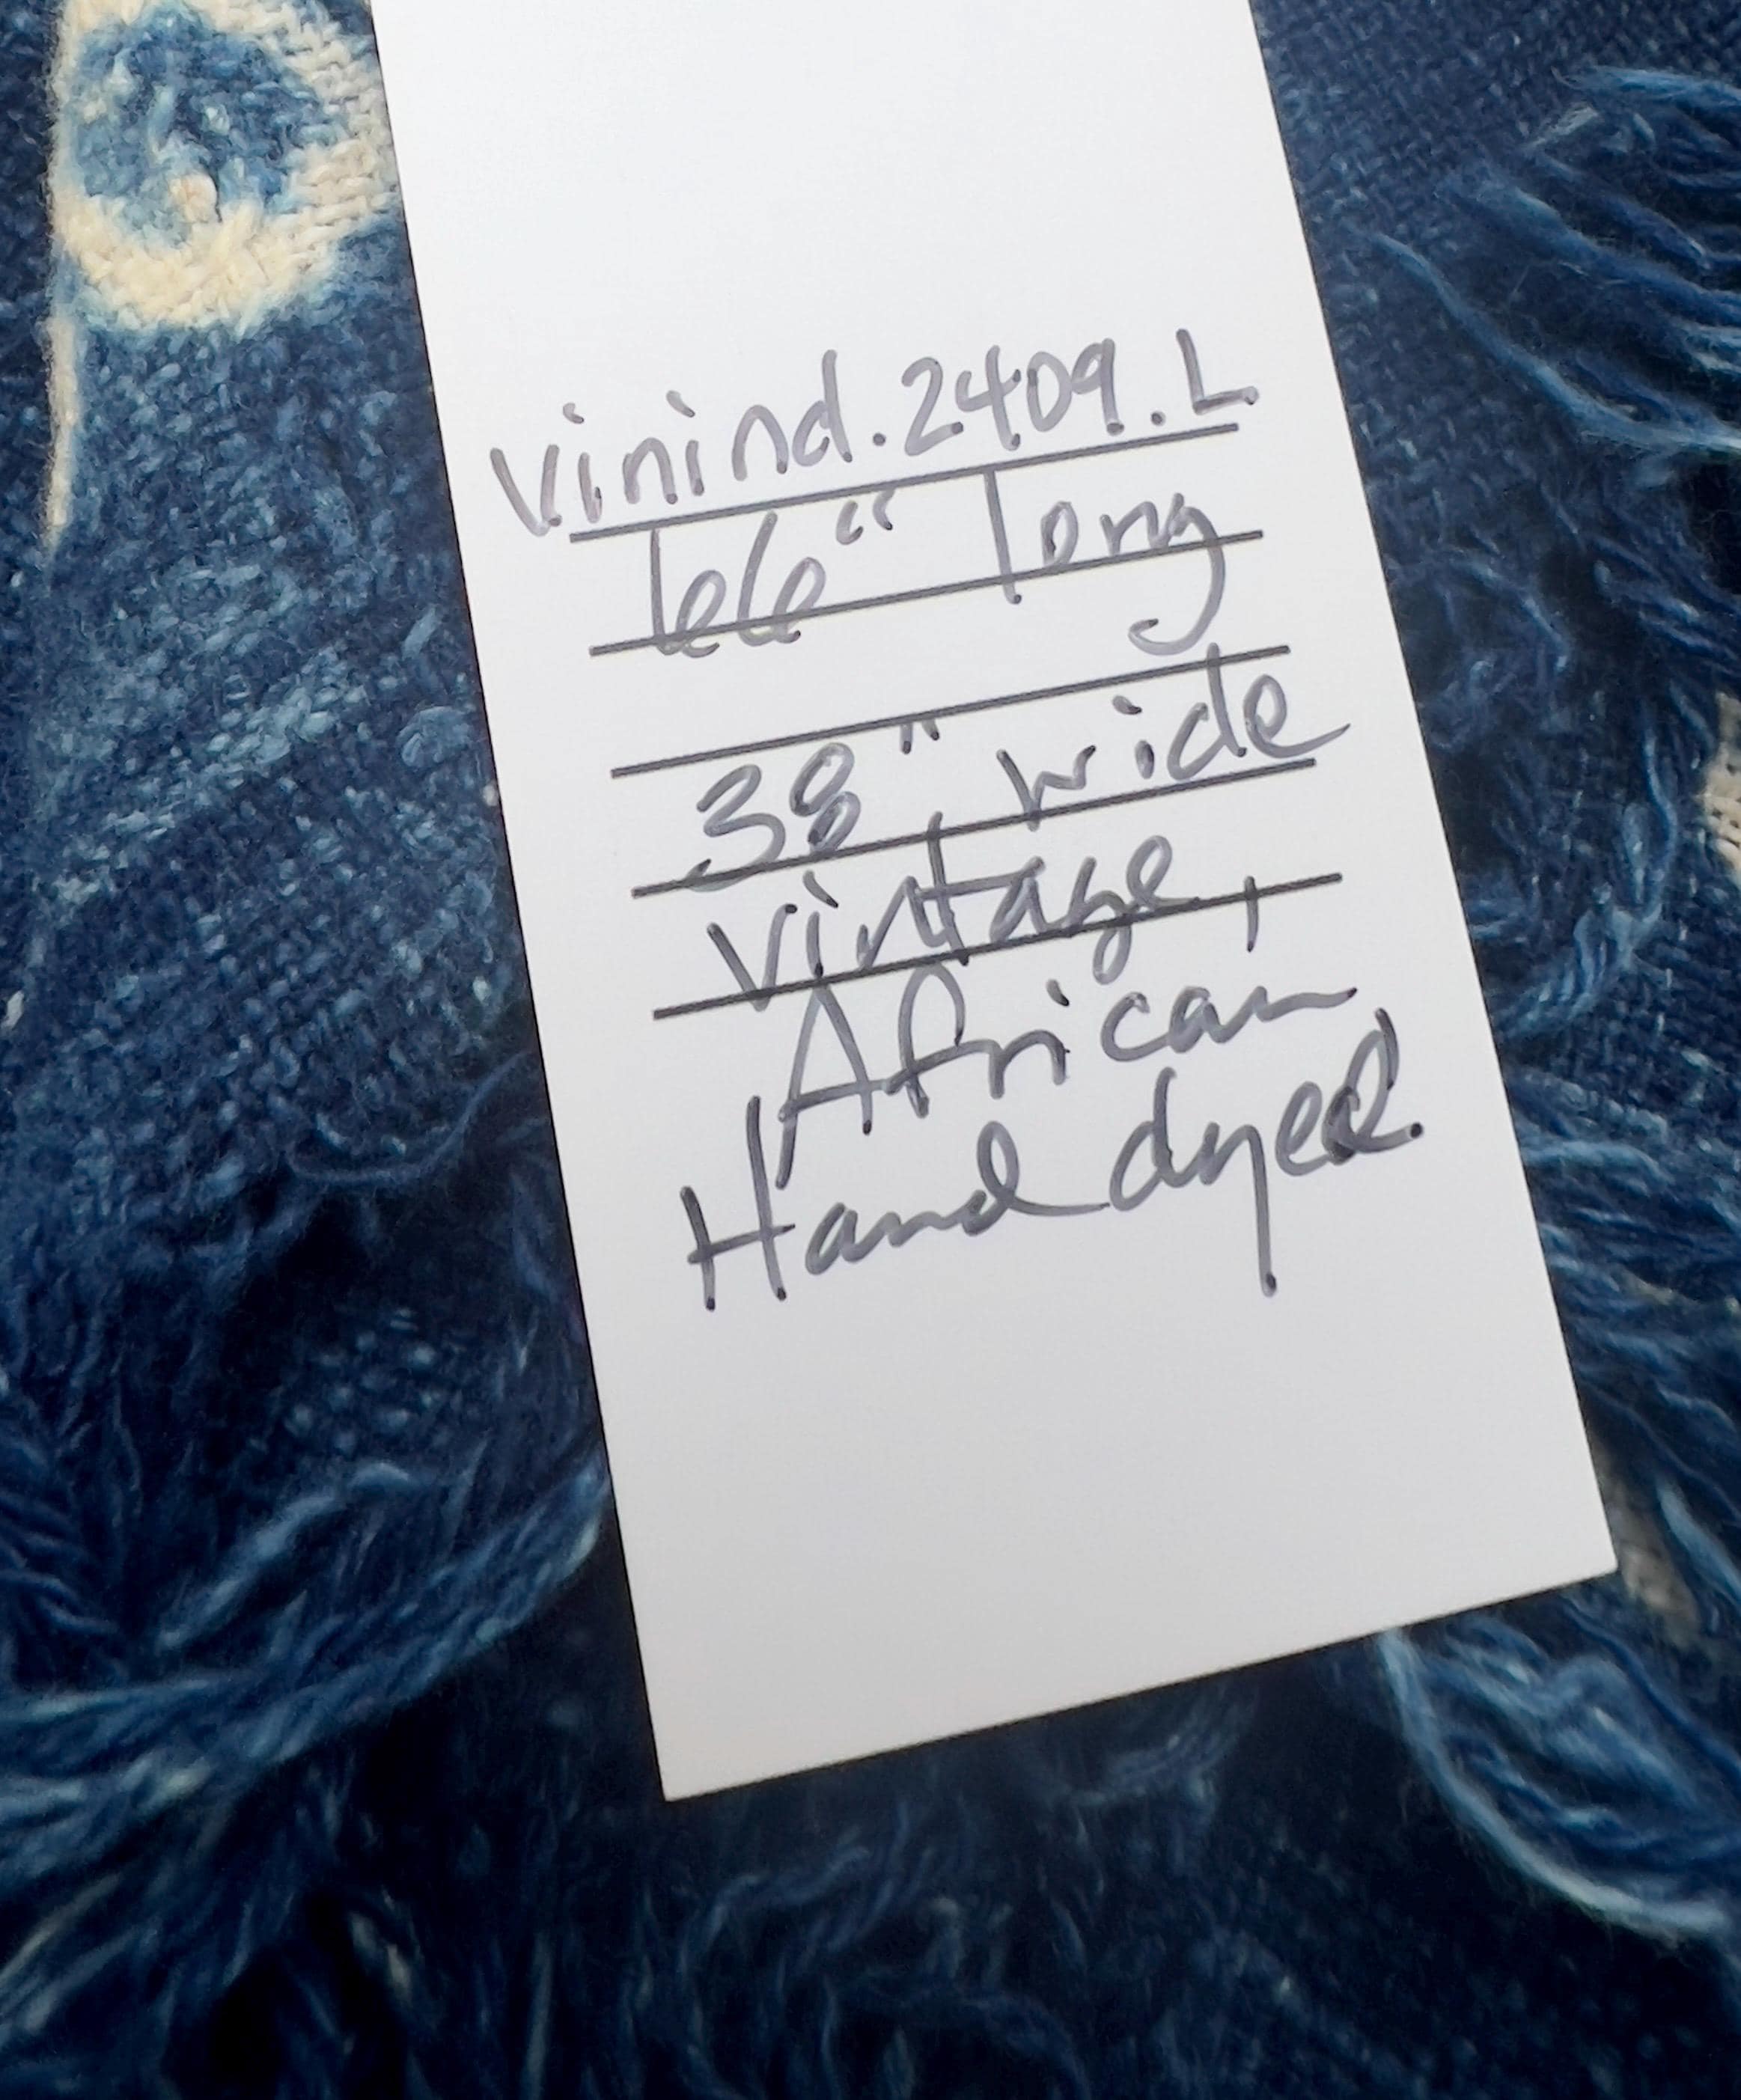 Vinind.2409.L
66" long
38" wide
vintage,
African
Hand dyed